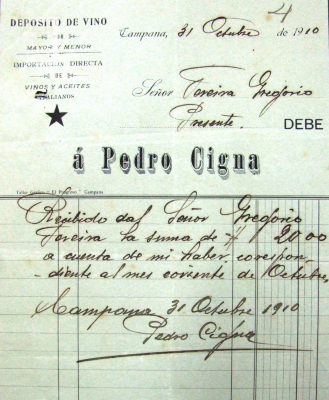 4
DEPOSITO DE VINO
POR
MAYOR Y MENOR
IMPORTACION DIRECTA
DE
VINOS Y ACEITES
ITALIANOS
Campana, 31 Octubre de 1910
Señor Pereira Gregorio
Presente. DEBE
á Pedro Cigna
Taller Gráfico "El Progreso" Campana
Recibido dal Señor Gregorio
Pereira la suma de $ 20.00
a cuenta de mi haber correspon-
diente al mes corriente de Octubre
Campana 31 Octubre 1910
Pedro Cigna